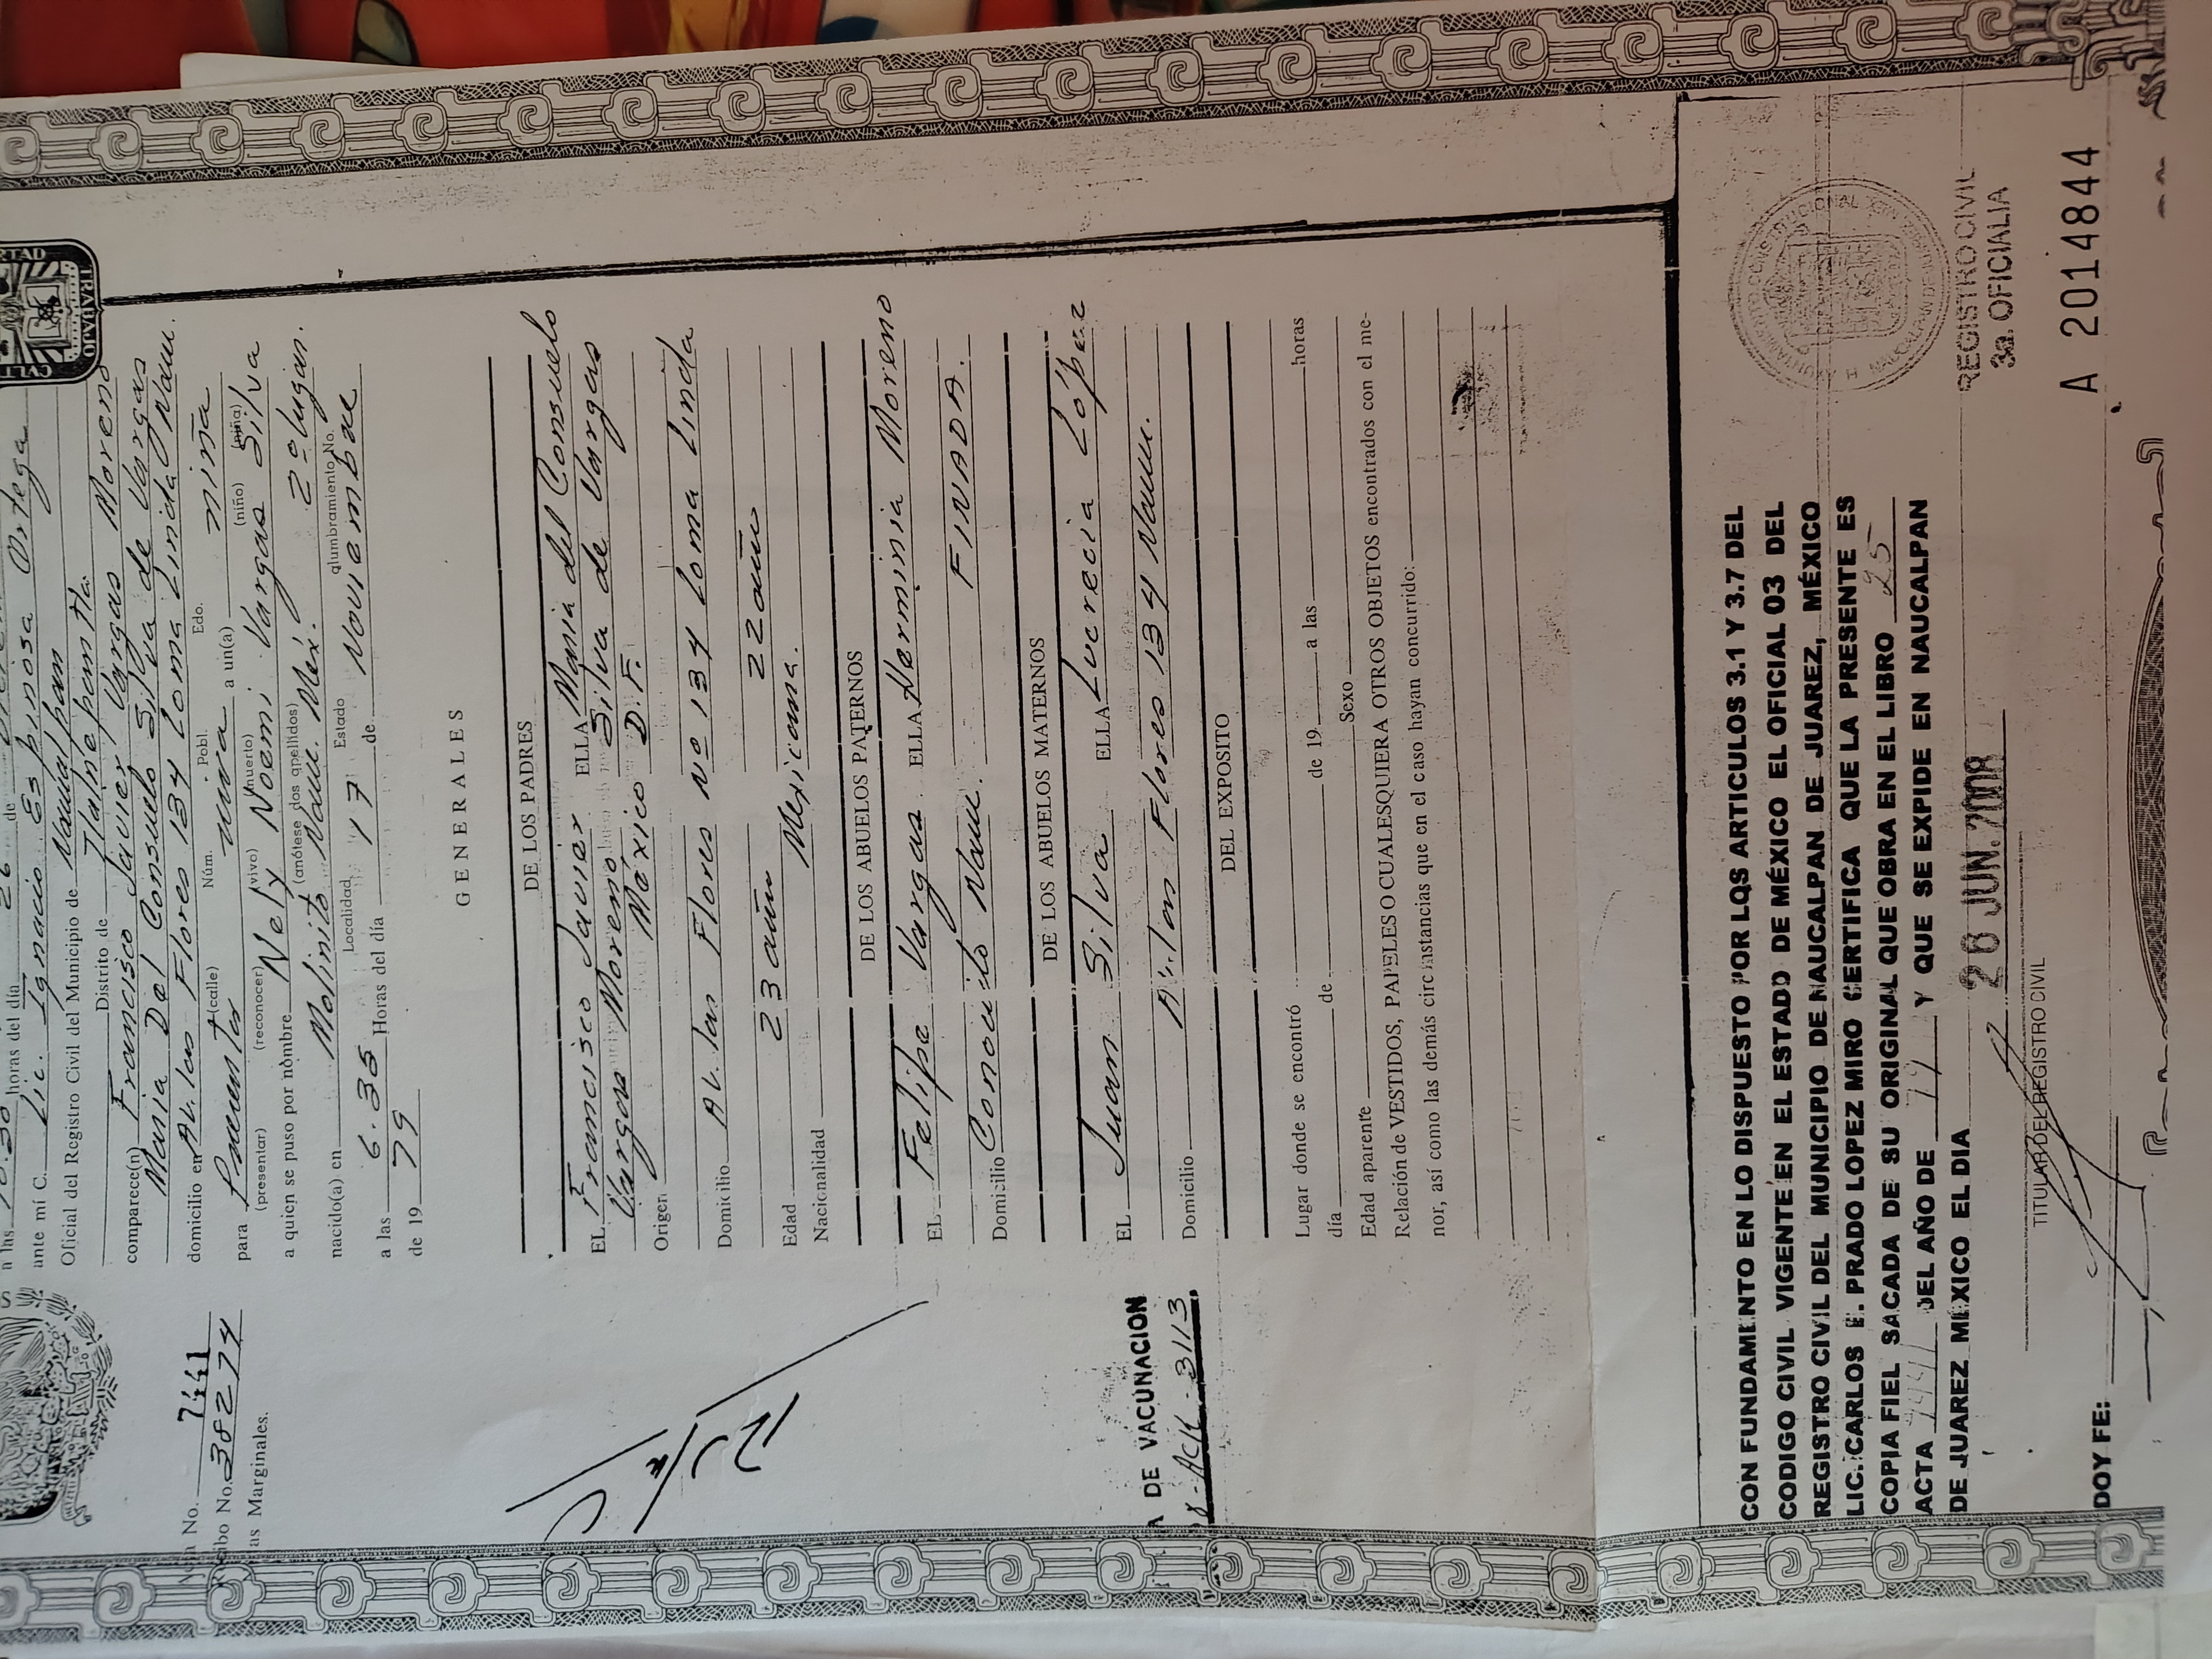 LIBERTAD
TRABAJO
CVLT
a las 10.30 horas del día 26 de
ante mí C. Lic. Ignacio Espinosa Ortega
Oficial del Registro Civil del Municipio de Naucalpan
Distrito de Tlalnepantla.
comparece(n) Francisco Javier Vargas Moreno
Maria Del Consuelo Silva de Vargas
domicilio en Av. las Flores 134 Loma Linda Nau.
(calle) Núm. Pobl. Edo.
para Presentar una a un(a) niña
(presentar) (reconocer) (vivo) (muerto) (niño) (niña)
a quien se puso por nombre Nely Noemi Vargas Silva
(anótese dos apellidos)
nacido(a) en Molinito Nau. Méx. 2º lugar.
Localidad Estado alumbramiento No.
a las 6.35 Horas del día 17 de Noviembre
de 19 79
Acta No. 7441
Recibo No. 38274
as Marginales.
GENERALES
DE LOS PADRES
EL Francisco Javier ELLA Maria del Consuelo
Vargas Moreno Silva de Vargas
Origen México D.F.
Domicilio Av. las Flores Nº 134 Loma Linda
Edad 23 años 22 años
Nacionalidad Mexicana.
DE LOS ABUELOS PATERNOS
EL Felipe Vargas ELLA Herminia Moreno
Domicilio Conocido Nau. FINADA.
DE LOS ABUELOS MATERNOS
EL Juan Silva ELLA Lucrecia López
Domicilio Av. las Flores 134 Nau.
A DE VACUNACION
3113
DEL EXPOSITO
Lugar donde se encontró horas
día de de 19 a las
Edad aparente Sexo
Relación de VESTIDOS, PAPELES O CUALESQUIERA OTROS OBJETOS encontrados con el me-
nor, así como las demás circunstancias que en el caso hayan concurrido:
CON FUNDAMENTO EN LO DISPUESTO POR LOS ARTICULOS 3.1 Y 3.7 DEL
CODIGO CIVIL VIGENTE EN EL ESTADO DE MÉXICO EL OFICIAL 03 DEL
REGISTRO CIVIL DEL MUNICIPIO DE NAUCALPAN DE JUAREZ, MÉXICO
LIC. CARLOS E. PRADO LOPEZ MIRO CERTIFICA QUE LA PRESENTE ES
COPIA FIEL SACADA DE SU ORIGINAL QUE OBRA EN EL LIBRO 25
ACTA 7441 DEL AÑO DE 79 Y QUE SE EXPIDE EN NAUCALPAN
DE JUAREZ MEXICO EL DIA 26 JUN. 2008
REGISTRO CIVIL
3a. OFICIALIA
TITULAR DEL REGISTRO CIVIL
DOY FE:
A 2014844